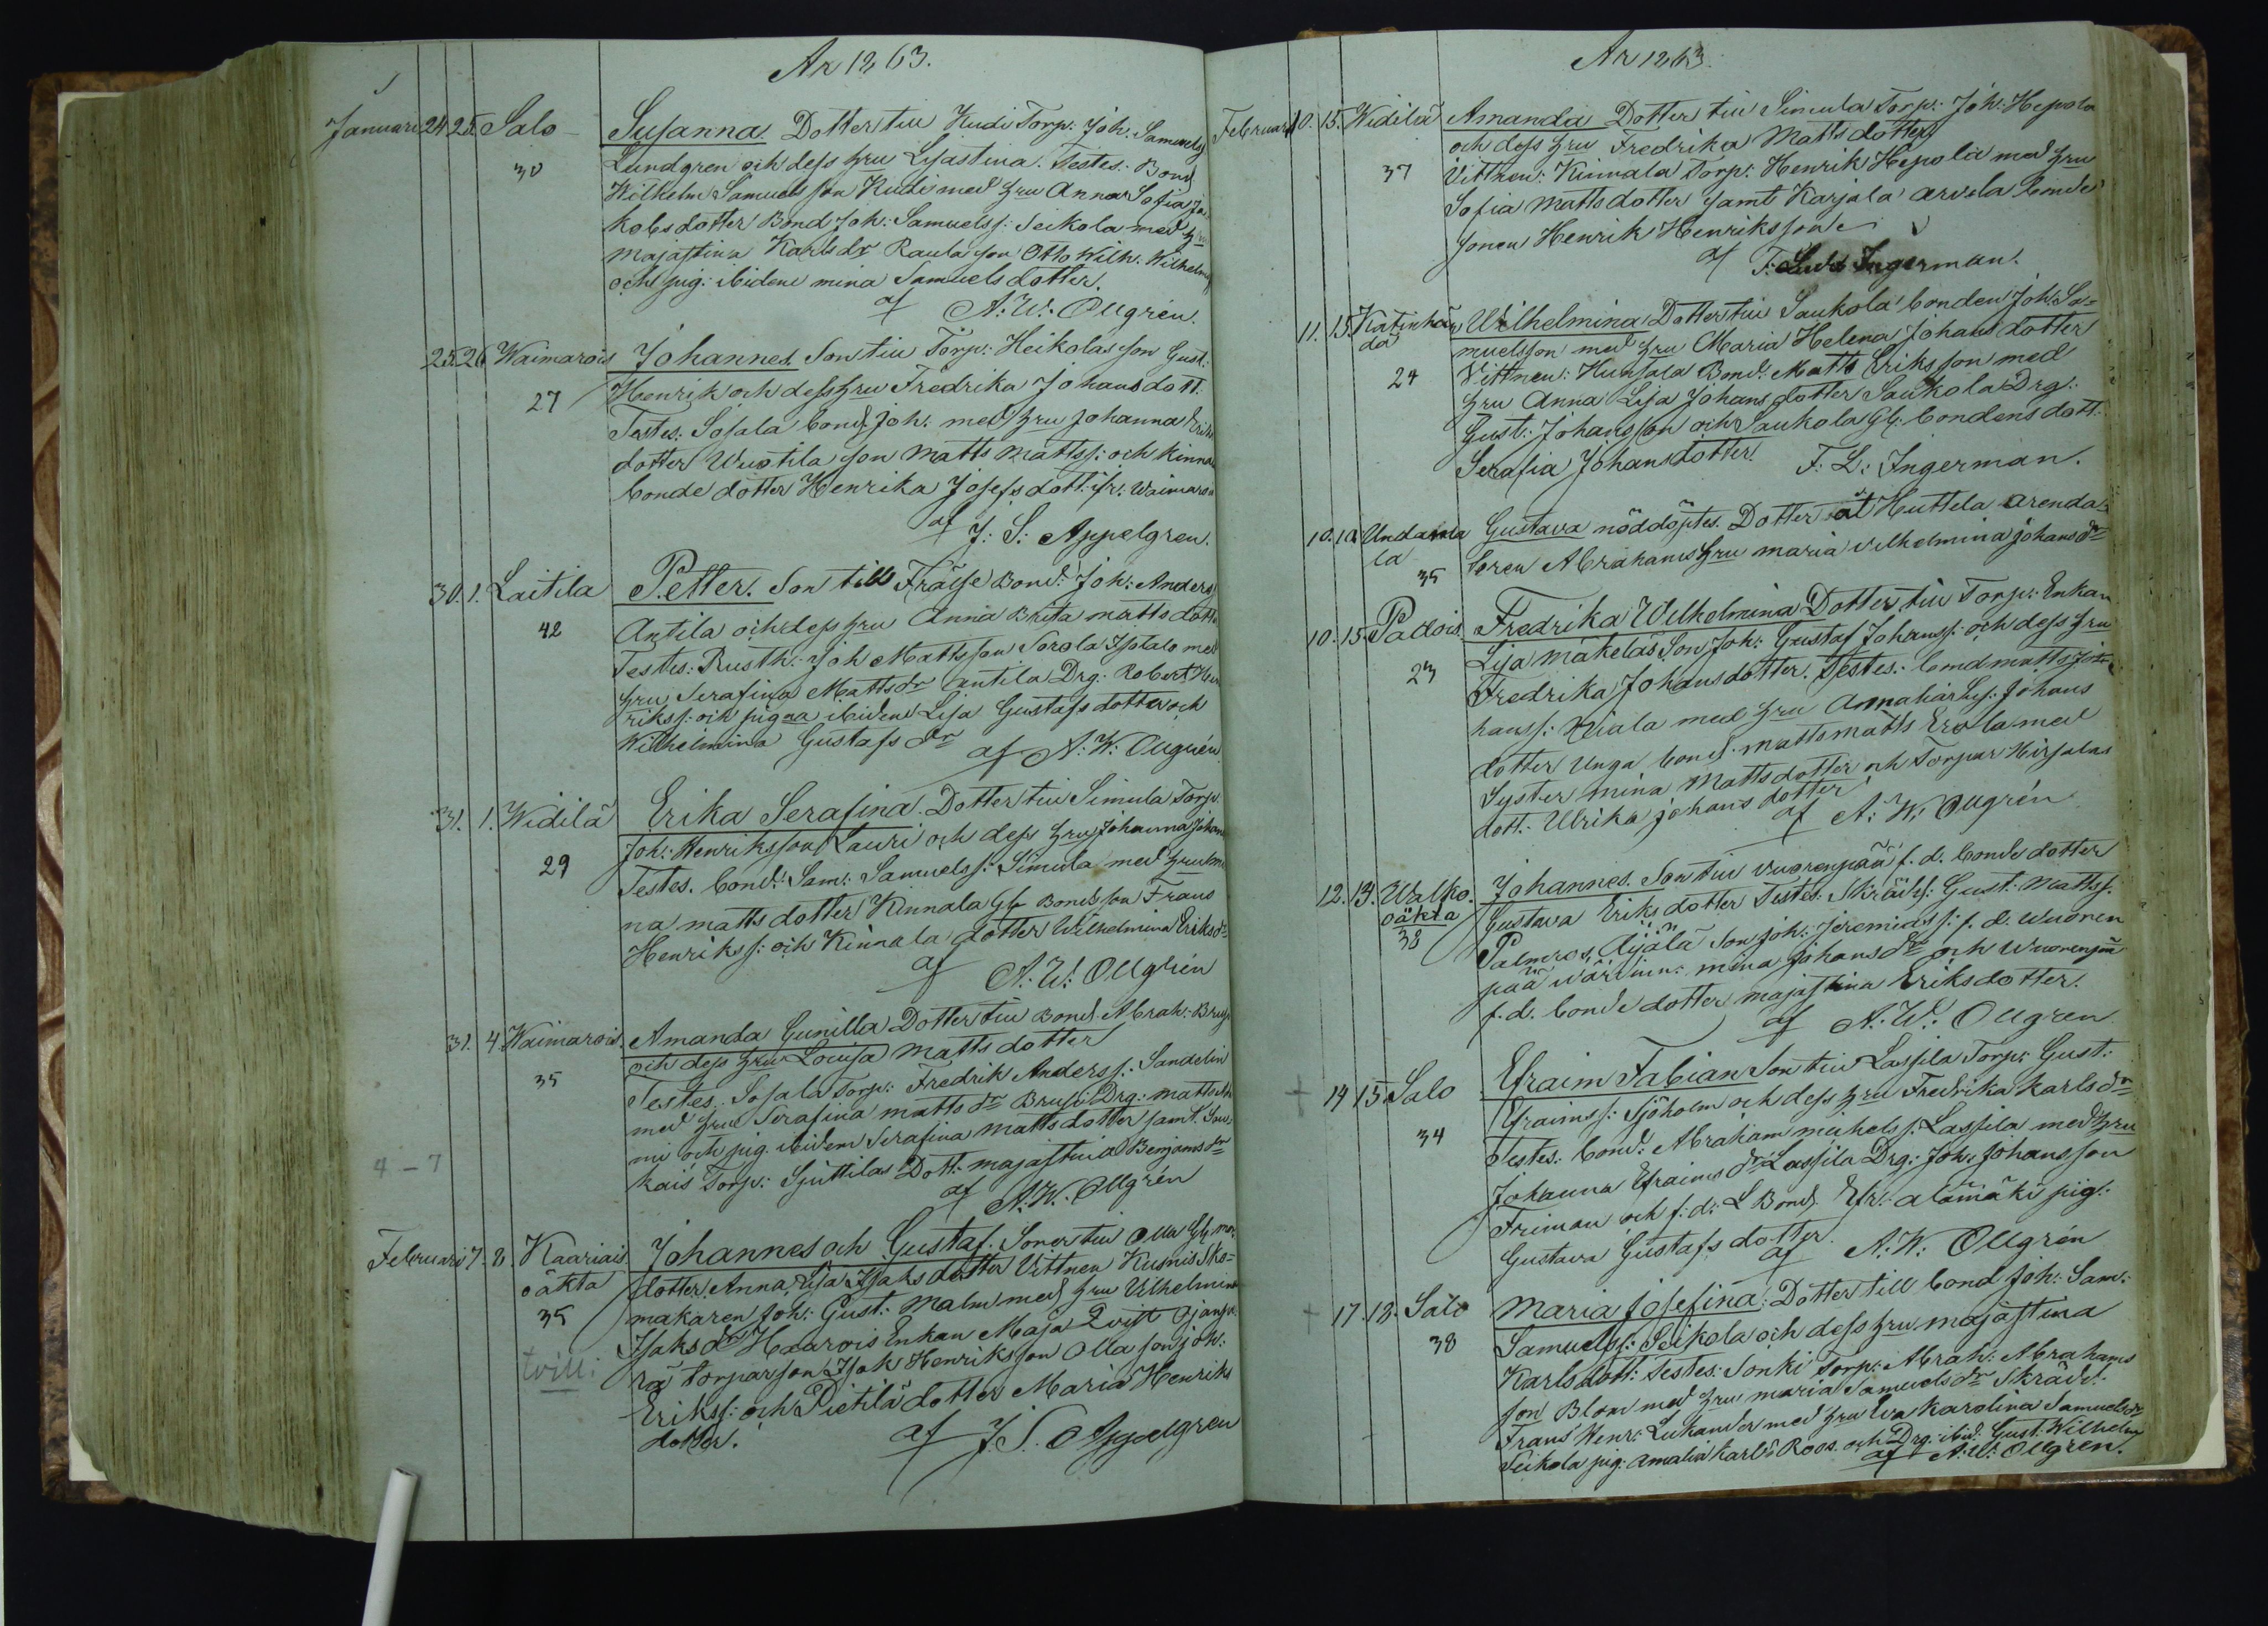 År 1863.
Januari 24 25. Salo Susanna. Dotter till Kudi Torp: Joh: Samuels
30 Lundgren och dess hru Lisastina. Testes: Bond
Wilhelm Samuelsson Kudi med hru Anna Sofia Ja-
kobsdotter Bond Joh: Samuelss: Seikola med hru
Majastina Karlsdr Raula son Otto Wilh. Wilhelms
och pig: ibidem mina Samuelsdotter.
af A: W: Ollgrén.
25 26 Waimarois Johannes Son till Torp: Heikolas son Gust:
27 Henrik och dess hru Fredrika Johansdott.
Testes: Sosala bond Joh: med hru Johanna Eriks
dotter Wuotila son Matts Mattss: och Kinna
bonde dotter Henrika Josefsdott: fr: Waimaro
af J: S: Appelgren.
30. 1. Laitila Petter. Son till Frälse Bond: Joh: Anders
42 Antila och dess hru Anna Brita Mattsdott
Testes: Rusth: Joh Mattsson Sorola Isotalo med
hru Serafina Mattsdr Antila Drg: Robert Hen
rikss: och pigna ibidem Lisa Gustafsdotter och
Wilhelmina Gustafsdr af A: W: Ollgrén
31. 1. Widilä Erika Serafina. Dotter till Simula Torp
Joh: Henriksson Lauri och dess hru Johanna Johan
29 Testes. bond: Sam: Samuelss: Simula med hru Mi
na mattsdotter Kinnala Gl Bonds son Frans
Henrikss: och Kinnala dotter Wilhelmina Eriksdr
af A: W: Ollgrén
31. 4. Waimarois. Amanda Gunilla Dotter till Bond Abrah: Brusi
och dess hru Lovisa Mattsdotter
35 Testes. Sosala Torp: Fredrik Anderss: Sandelin
med hru Serafina Mattsdr Brusi Drg: Matts
mi och pig. ibidem Serafina Mattsdotter samt Sau
4 - 7
kais Torp: Sjuttilas Dott: Majastina Benjamsdr
af A: W: Ollgrén
Februari 7. 8. Kaariais Johannes och Gustaf. Söner till Olla Gl: mor
oäkta dotter Anna Lisa Isaksdotter Vittnen Kusnis Sko-
35 makaren Joh: Gust: Malm med hru Vilhelmina
Isaksdr Haarois Enkan Maja Qvist Ojansu
tvill: rä torparson Isak Henriksson Olla son joh:
Erikss: och Pietilä dotter Maria Henriks
dotter. af J. S. Appelgren
År 1863
Februari 10. 15. Widilä Amanda Dotter till Simula Torp: Joh: Hepola
och dess hru Fredrika Mattsdotter
37 Vittnen: Kinnala Torp: Henrik Hepola med hru
Sofia Mattsdotter samt Karjala Arvela bonde
sonen Henrik Henriksson
af F. Ludv Ingerman.
11. 15 Katinhän Wilhelmina Dotter till Saukola bonden Joh: Sa-
dä muelsson med hru Maria Helena Johansdotter
24 Vittnen: Huusala Bond: Matts Eriksson med
hru Anna Lisa Johansdotter Saukola Drg:
Gust: Johansson och Saukola Gl: bondens dott:
Serafia Johansdotter. F: L: Ingerman.
10. 10 Undamala Gustava nöddöptes. Dotter åt Huttela arenda
la toren Abrahams hru maria vilhelmina johansdr
35
10. 15. Pallois. Fredrika Wilhelmina Dotter till Torp: Enkan
23 Lisa Mäkeläs Son Joh: Gustaf Johanss: och dess hru
Fredrika Johansdotter. Testes: bond matts Jo-
hanss: Kiala med hru Annakaisa: Johans
dotter Unga bond: matts matts Erola med
Syster mina Mattsdotter och Torpar Hirjalas
dott: Ulrika johansdotter
af A: W: Ollgrén
12. 14. Walko. Johannes. Son till Vuorenpää f. d. bonde dotter
oäkta Gustava Eriksdotter Testes. Skrädd: Gust: Mattss:
38 Palmros, Äijälä son joh: jeremiass: f. d. Wuoren
pää värdinn: mina johansdr och Wuorenpää
f. d. bonde dotter majastina Eriksdotter.
af A: W: Ollgren
+ 14 15 Salo Efraim Fabian Son till Lassila Torp: Gust:
Efraimss: Sjöholm och dess hru Fredrika Karlsdr
34 Testes: bond: Abraham mickelss: Lassila med hru
Johanna Efraimsdr Lassila Drg: Joh: Johansson
Friman och f: d: L Bond. Efr: alamäki pig:
Gustava Gustafsdotter. af A: W: Ollgrén
+ 17. 18. Salo Maria Josefina: Dotter till bond Joh: Sam:
38 Samuelss: Seikola och dess hru majastina
Karlsdott: testes: Sonki Torp: Abrah: Abrahams
son Blom med hru maria Samuelsdr Skrädd:
Frans Henr: Lukander med hru Eva Karolina Samuelsdr
Seikola pig: Amalia Karlsd Roos. och Drg: ibid: Gust: Wilhelm
af A: W: Ollgrén.